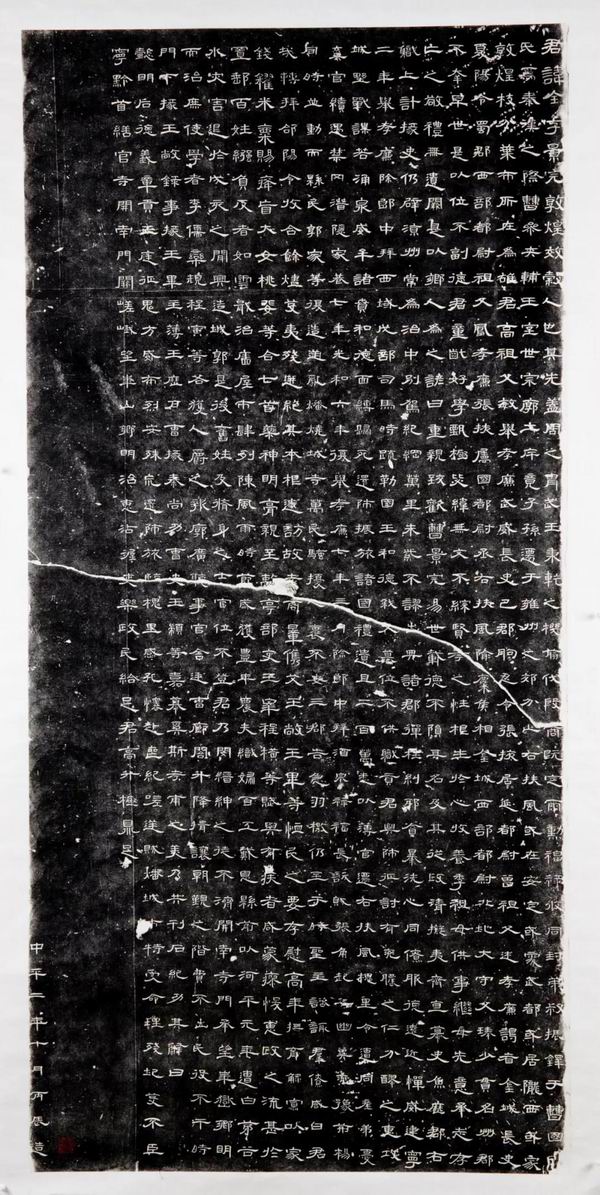 君諱全字景完敦煌效穀人也其先蓋周之冑武王秉乾之機翦伐殷商既定爾勳福祿攸同封弟叔振鐸于曹國因
氏焉秦漢之際曹參夾輔王室世宗廓土斥竟子孫遷于雍州之郊分止右扶風或在安定或處武都或居隴西或家
敦煌枝分葉布所在為雄君高祖父敏舉孝廉武威長史巴郡朐忍令張掖居延都尉曾祖父述孝廉謁者金城長史
夏陽令蜀郡西部都尉祖父鳳孝廉張掖屬國都尉丞右扶風隃麋侯相金城西部都尉北地大守父琫少貫名州郡
不幸早世是以位不副德君童齔好學甄極毖緯無文不綜賢孝之性根生於心收養季祖母供事繼母先意承志存
亡之敬禮無遺闕是以鄉人為之諺曰重親致歡曹景完易世載德不隕其名及其從政清擬夷齊直慕史魚歷郡右
職上計掾史仍辟涼州常為治中別駕紀綱萬里朱紫不謬出典諸郡彈枉糾邪貪暴洗心同僚服德遠近憚威建寧
二年舉孝廉除郎中拜西域戊部司馬時疏勒國王和德弒父篡位不供職貢君興師征討有吮膿之仁分醪之惠攻
城野戰謀若涌泉威牟諸賁和德面縛歸死還師振旅諸國禮遺且二百萬悉以薄官遷右扶風槐里令遭同產弟憂
棄官續遇禁冈潛隱家巷七年光和六年復舉孝廉七年三月除郎中拜酒泉祿福長訞賊張角起兵幽冀兗豫荊楊
同時並動而縣民郭家等復造逆亂燔燒城寺萬民騷擾人裹不安三郡告急羽檄仍至于時聖主諮諏群僚咸曰君
哉轉拜郃陽令收合餘燼芟夷殘迸絕其本根遂訪故老商量儁艾王敞王畢等恤民之要存慰高年撫育鰥寡以家
錢糴米粟賜癃盲大女桃婓等合七首藥神明膏親至離亭部吏王宰程橫等賦與有疾者咸蒙瘳悛惠政之流甚於
置郵百姓繦負反者如雲戢治廧屋市肆列陳風雨時節歲獲豐年農夫織婦百工戴恩縣前以河平元年遭白茅谷
水灾害退於戌亥之間興造城郭是後舊姓及脩身之士官位不登君乃閔縉紳之徒不濟開南寺門承望華嶽鄉明
而治庶使學者李儒欒規程寅等各獲人爵之報廓廣聽事官舍廷曹廊閣升降揖讓朝覲之階費不出民役不干時
門下掾王敞錄事掾王畢主薄王歷戶曹掾秦尚功曹史王顓等嘉慕奚斯考甫之美乃共刊石紀功其辭曰
懿明后德義章貢王廷征鬼方威布烈安殊荒還師旅臨槐里感孔懷赴喪紀嗟逆賊燔城市特受命理殘圮芟不臣
寧黔首繕官寺開南門闕嵯峨望華山鄉明治惠沾渥吏樂政民給足君高升極鼎足
中平二年十月丙辰造